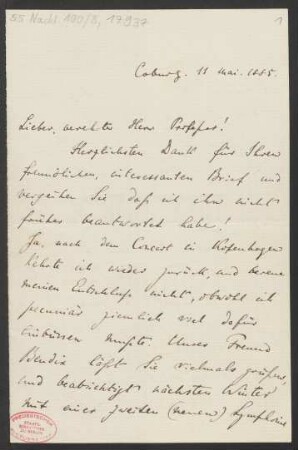 55 Nachl 100/B, 17937
1
Coburg. 11 Mai. 1885.
Lieber, verehrter Herr Professor!
Herzlichsten Dank für Ihren
freundlichen, interessanten Brief und
verzeihen Sie daß ich ihn nicht
früher beantwortet habe!
Ja, nach dem Concert in Kopenhagen
kehrte ich wieder zurück, und bereue
meinen Entschluß nicht, obwohl ich
pecuniär ziemlich viel dafür
einbüssen mußte. Unser Freund
Bendix läßt Sie vielmals grüßen,
und beabsichtigt nächsten Winter
mit einer zweiten (neuen) Symphonie